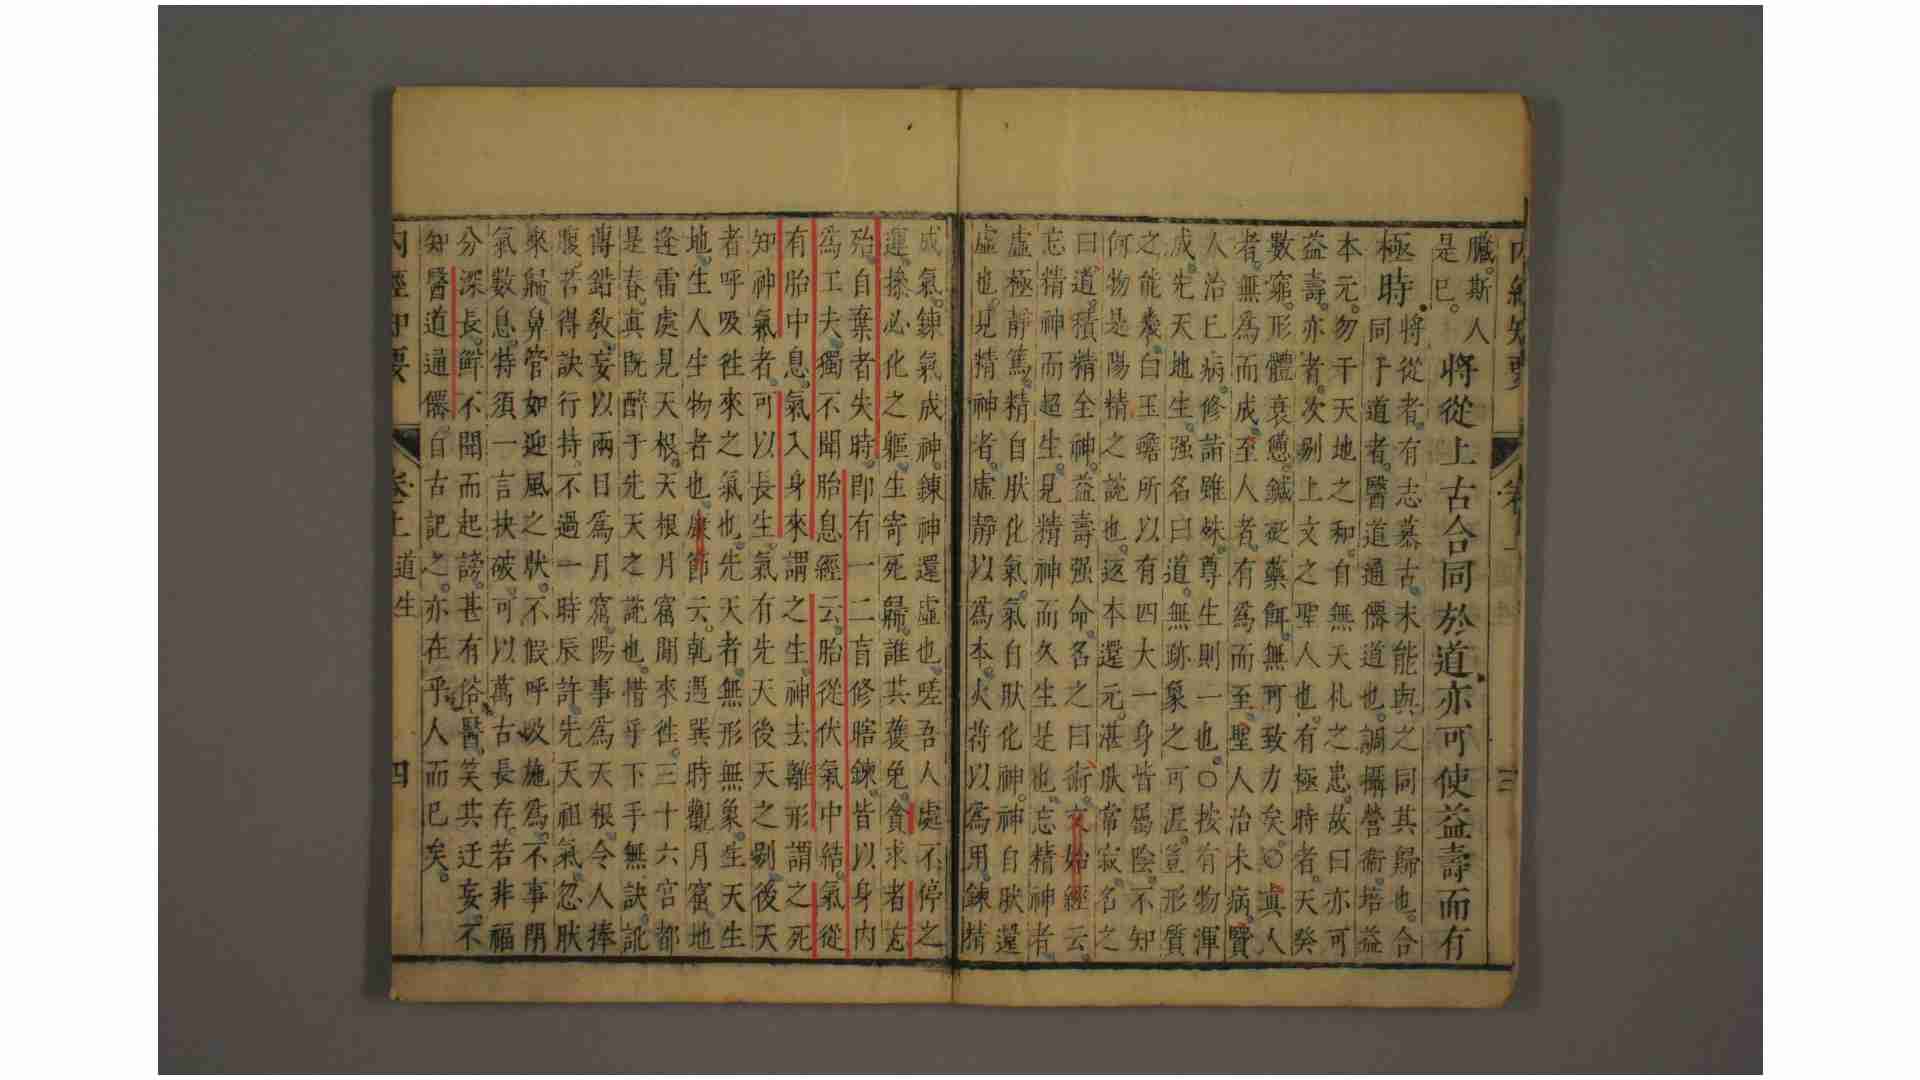 內經知要 卷上 三
臟。斯人
是已。
將從上古合同於道亦可使益壽而有
極時
將從者。有志慕古。未能與之同其歸也。合
同于道者。醫道通僊道也。調攝營衞。培益
本元。勿干天地之和。自無夭札之患。故曰亦可
益壽。亦者。次别上文之聖人也。有極時者。天癸
數窮。形體衰憊。鍼砭藥餌。無可致力矣。○真人
者。無爲而成。至人者。有爲而至。聖人治未病。賢
人治已病。修詣雖姝。尊生則一也。○按有物渾
成。先天地生。强名曰道。無跡象之可涯。豈形質
之能幾。白玉蟾所以有四大一身皆屬陰。不知
何物是陽精之說也。返本還元。湛肰常寂。名之
曰道。積精全神。益壽强命。名之曰術。文始經云。
忘精神而超生。見精神而久生是也。忘精神者。
虛極靜篤。精自肰化氣。氣自肰化神。神自肰還
虛也。見精神者。虛靜以爲本。火符以爲用。鍊精
成氣。鍊氣成神。鍊神還虛也。嗟吾人處不停之
運。操必化之軀。生寄死歸。誰其獲免。貪求者
殆。自棄者失時。即有一二盲修瞎鍊。皆以身內
爲工夫。獨不聞胎息經云。胎從伏氣中結。氣從
有胎中息。氣入身來謂之生。神去離形謂之死
知神氣者。可以長生。氣有先天後天之别。後天
者呼吸徃來之氣也。先天者無形無象。生天生
地。生人生物者也。康節云。乾遇巽時觀月窟。地
逢雷處見天根。天根月窟閒來徃。三十六宮都
是春。真既醉于先天之說也。惜乎下手無訣。訛
傳錯教。妄以兩目爲月窟。陽事爲天根。令人捧
腹。若得訣行持。不過一時辰許。先天祖氣。忽肰
來歸。鼻管如迎風之狀。不假呼吸施爲。不事閉
氣數息。特須一言抉破。可以萬古長存。若非福
分深長。鮮不聞而起謗。甚有俗醫。笑其迂妄。不
知醫道通僊。自古記之。亦在乎人而已矣。
內經知要 卷上 道生 四